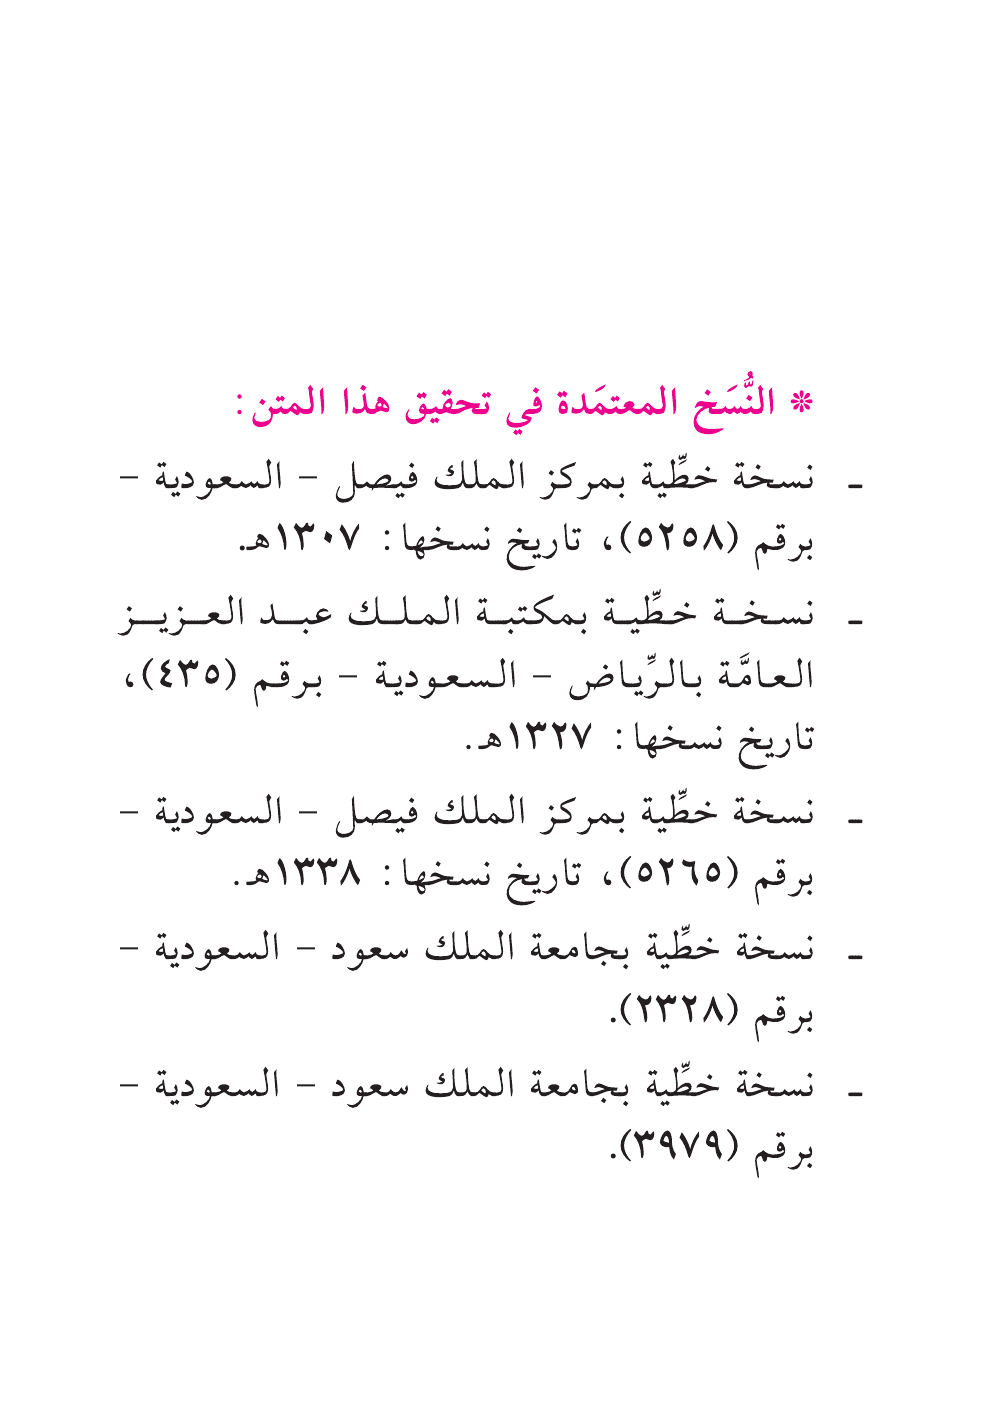 * النُّسَخ المعتمَدة في تحقيق هذا المتن:
ـ نسخة خطِّية بمركز الملك فيصل – السعودية –
برقم (٥٢٥٨)، تاريخ نسخها: ١٣٠٧هـ.
ـ نسخة خطِّية بمكتبة الملك عبد العزيز
العامَّة بالرِّياض – السعودية – برقم (٤٣٥)،
تاريخ نسخها: ١٣٢٧هـ.
ـ نسخة خطِّية بمركز الملك فيصل – السعودية –
برقم (٥٢٦٥)، تاريخ نسخها: ١٣٣٨هـ.
ـ نسخة خطِّية بجامعة الملك سعود – السعودية –
برقم (٢٣٢٨).
ـ نسخة خطِّية بجامعة الملك سعود – السعودية –
برقم (٣٩٧٩).